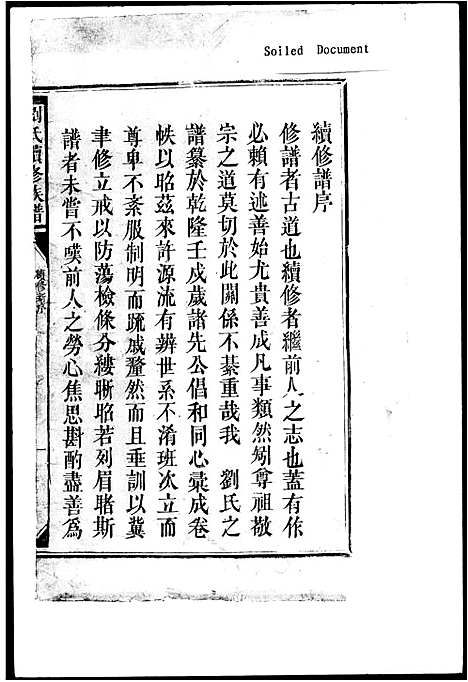 Soiled Document
續修譜序
修譜者古道也續修者繼前人之志也蓋有作
必賴有述善始尤貴善成凡事類然矧尊祖敬
宗之道莫切於此關係不綦重哉我 劉氏之
譜纂於乾隆壬戍歲諸先公倡和同心彙成卷
帙以昭茲來許源流有辨世系不淆班次立而
尊卑不紊服制明而疏戚釐然而且垂訓以冀
聿修立戒以防蕩檢條分縷晰昭若列眉睹斯
譜者未嘗不嘆前人之勞心焦思斟酌盡善爲
劉氏續修族譜
續修譜序